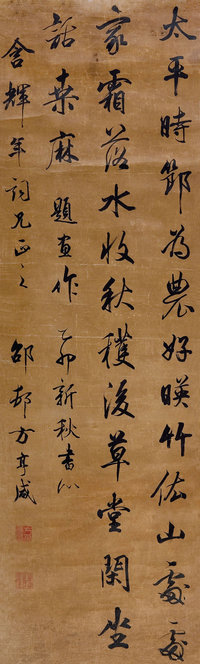 太平時節為農好暎竹依山處處
家霜落水收秋穫後草堂閑坐
話桑麻 題畫作 乙卯新秋書似
含輝年詞兄正之 邵邨方亨咸